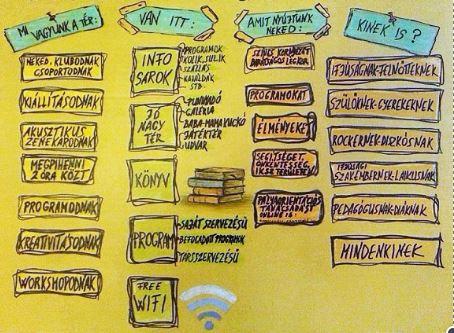 MI VAGYUNK A TÉR:
NEKED, KLUBODNAK
CSOPORTODNAK
KIÁLLÍTÁSODNAK
AKUSZTIKUS
ZENEKARODNAK
MEGPIHENNI
2 ÓRA KÖZT
PROGRAMODNAK
KREATIVITÁSODNAK
WORKSHOPODNAK
VAN ITT:
INFO
SAROK
PROGRAMOK
KOLIK, SULIK
SZÁLLÁS
KAJÁLDÁK
STB.
JÓ
NAGY
TÉR
GALÉRIA
BABA-MAMA KUCKÓ
JÁTÉKTÉR
UDVAR
KÖNYV
PROGRAM
SAJÁT SZERVEZÉSŰ
BEFOGADOTT PROGRAMOK
TÁRSSZERVEZÉSŰ
FREE
WIFI
AMIT NYÚJTUNK
NEKED:
SZÍNES KÖRNYEZET
BARÁTSÁGOS LÉGKÖR
PROGRAMOKAT
ÉLMÉNYEKET
SEGÍTSÉGET,
ÖNKÉNTESSÉG,
IKSZ TERÜLETEN
PÁLYAORIENTÁCIÓS
TANÁCSADÁST
ONLINE IS
KINEK IS?
IFJÚSÁGNAK-FELNŐTTEKNEK
SZÜLŐKNEK-GYEREKEKNEK
ROCKERNEK-DIZKÓSNAK
IFJÚSÁGI
SZAKEMBERNEK-LAIKUSNAK
PEDAGÓGUSNAK-DIÁKNAK
MINDENKINEK